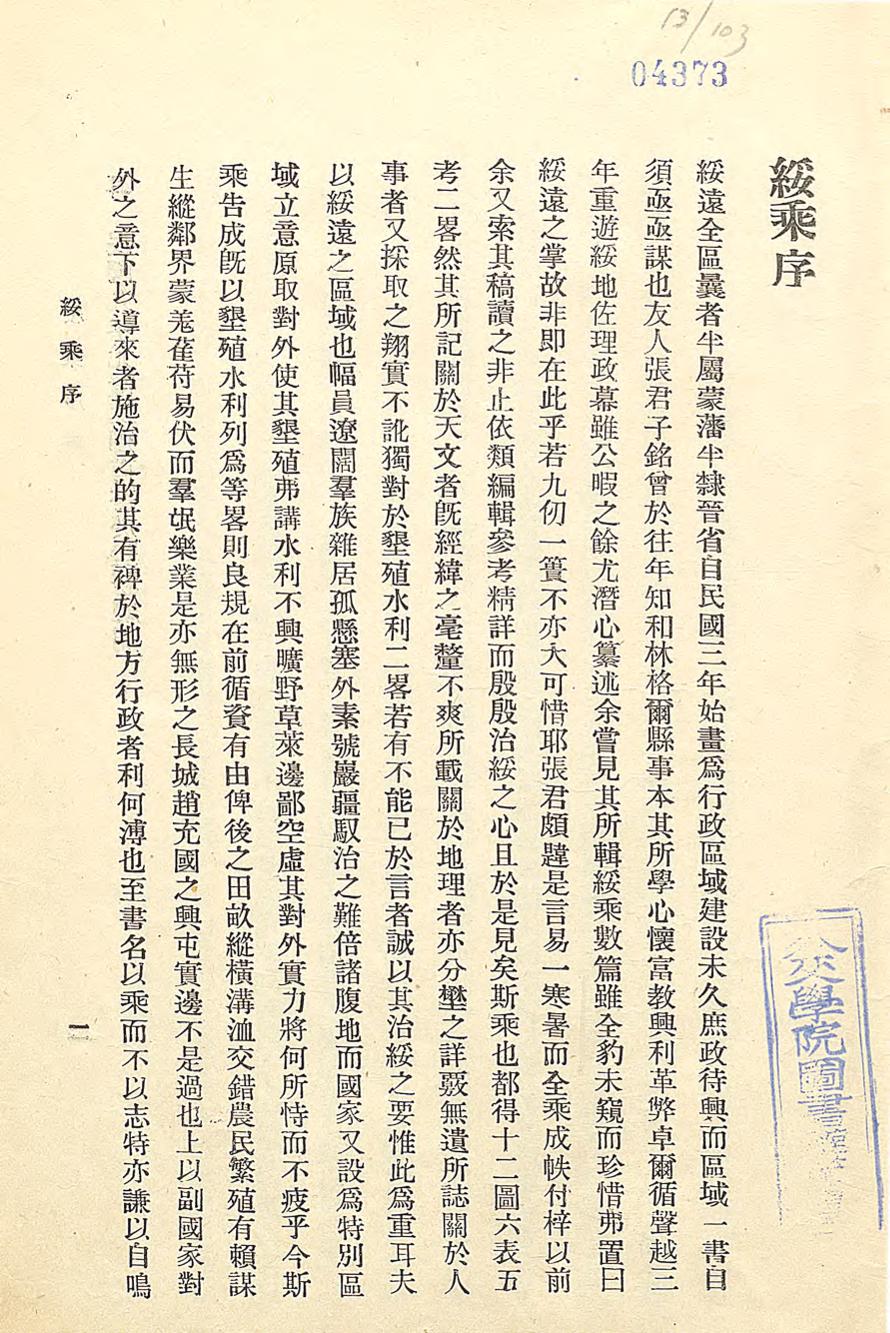 13/103
04373
綏乘序
綏遠全區曩者半屬蒙藩半隸晉省自民國三年始畫爲行政區域建設未久庶政待興而區域一書自
須亟亟謀也友人張君子銘曾於往年知和林格爾縣事本其所學心懷富教興利革弊卓爾循聲越三
年重遊綏地佐理政幕雖公暇之餘尤潛心纂述余嘗見其所輯綏乘數篇雖全豹未窺而珍惜弗置曰
綏遠之掌故非即在此乎若九仞一簣不亦大可惜耶張君頗韙是言易一寒暑而全乘成帙付梓以前
余又索其稿讀之非止依類編輯參考精詳而殷殷治綏之心且於是見矣斯乘也都得十二圖六表五
考二畧然其所記關於天文者旣經緯之毫釐不爽所載關於地理者亦分櫱之詳覈無遺所誌關於人
事者又採取之翔實不訛獨對於墾殖水利二畧若有不能已於言者誠以其治綏之要惟此爲重耳夫
以綏遠之區域也幅員遼闊羣族雜居孤懸塞外素號巖疆馭治之難倍諸腹地而國家又設爲特別區
域立意原取對外使其墾殖弗講水利不興曠野草萊邊鄙空虛其對外實力將何所恃而不疲乎今斯
乘告成旣以墾殖水利列爲等畧則良規在前循資有由俾後之田畝縱橫溝洫交錯農民繁殖有賴謀
生縱鄰界蒙羌萑苻易伏而羣氓樂業是亦無形之長城趙充國之興屯實邊不是過也上以副國家對
外之意下以導來者施治之的其有裨於地方行政者利何溥也至書名以乘而不以志特亦謙以自鳴
綏乘序
一
學院圖書